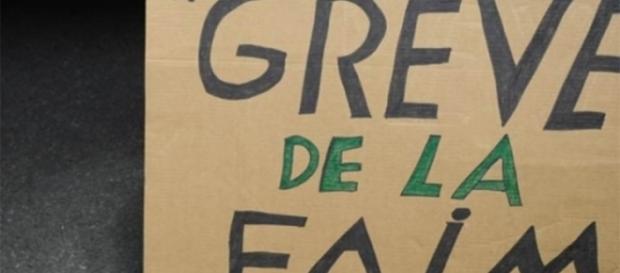 GREVE
DE LA
FAiM